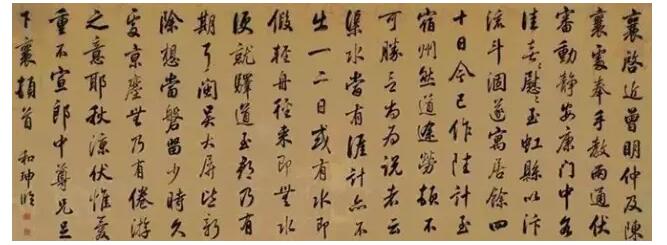 襄啓近曾明仲及陳
襄處奉手教兩通伏
審動靜安康門中各
佳喜〻慰〻至虹縣以汴
流斗涸遂寓居餘四
十日今已作陸計至
宿州然道途勞頓不
可勝言尚為說者云
渠水當有涯計亦不
出一二日或有水即
假輕舟徑來即無水
便就驛道至都乃有
期耳閩吳大屏皆新
除想當磐留少時久
處京鏖無乃有倦游
之意耶秋涼伏惟愛
重不宣郎中尊兄足
下襄頓首 和珅臨